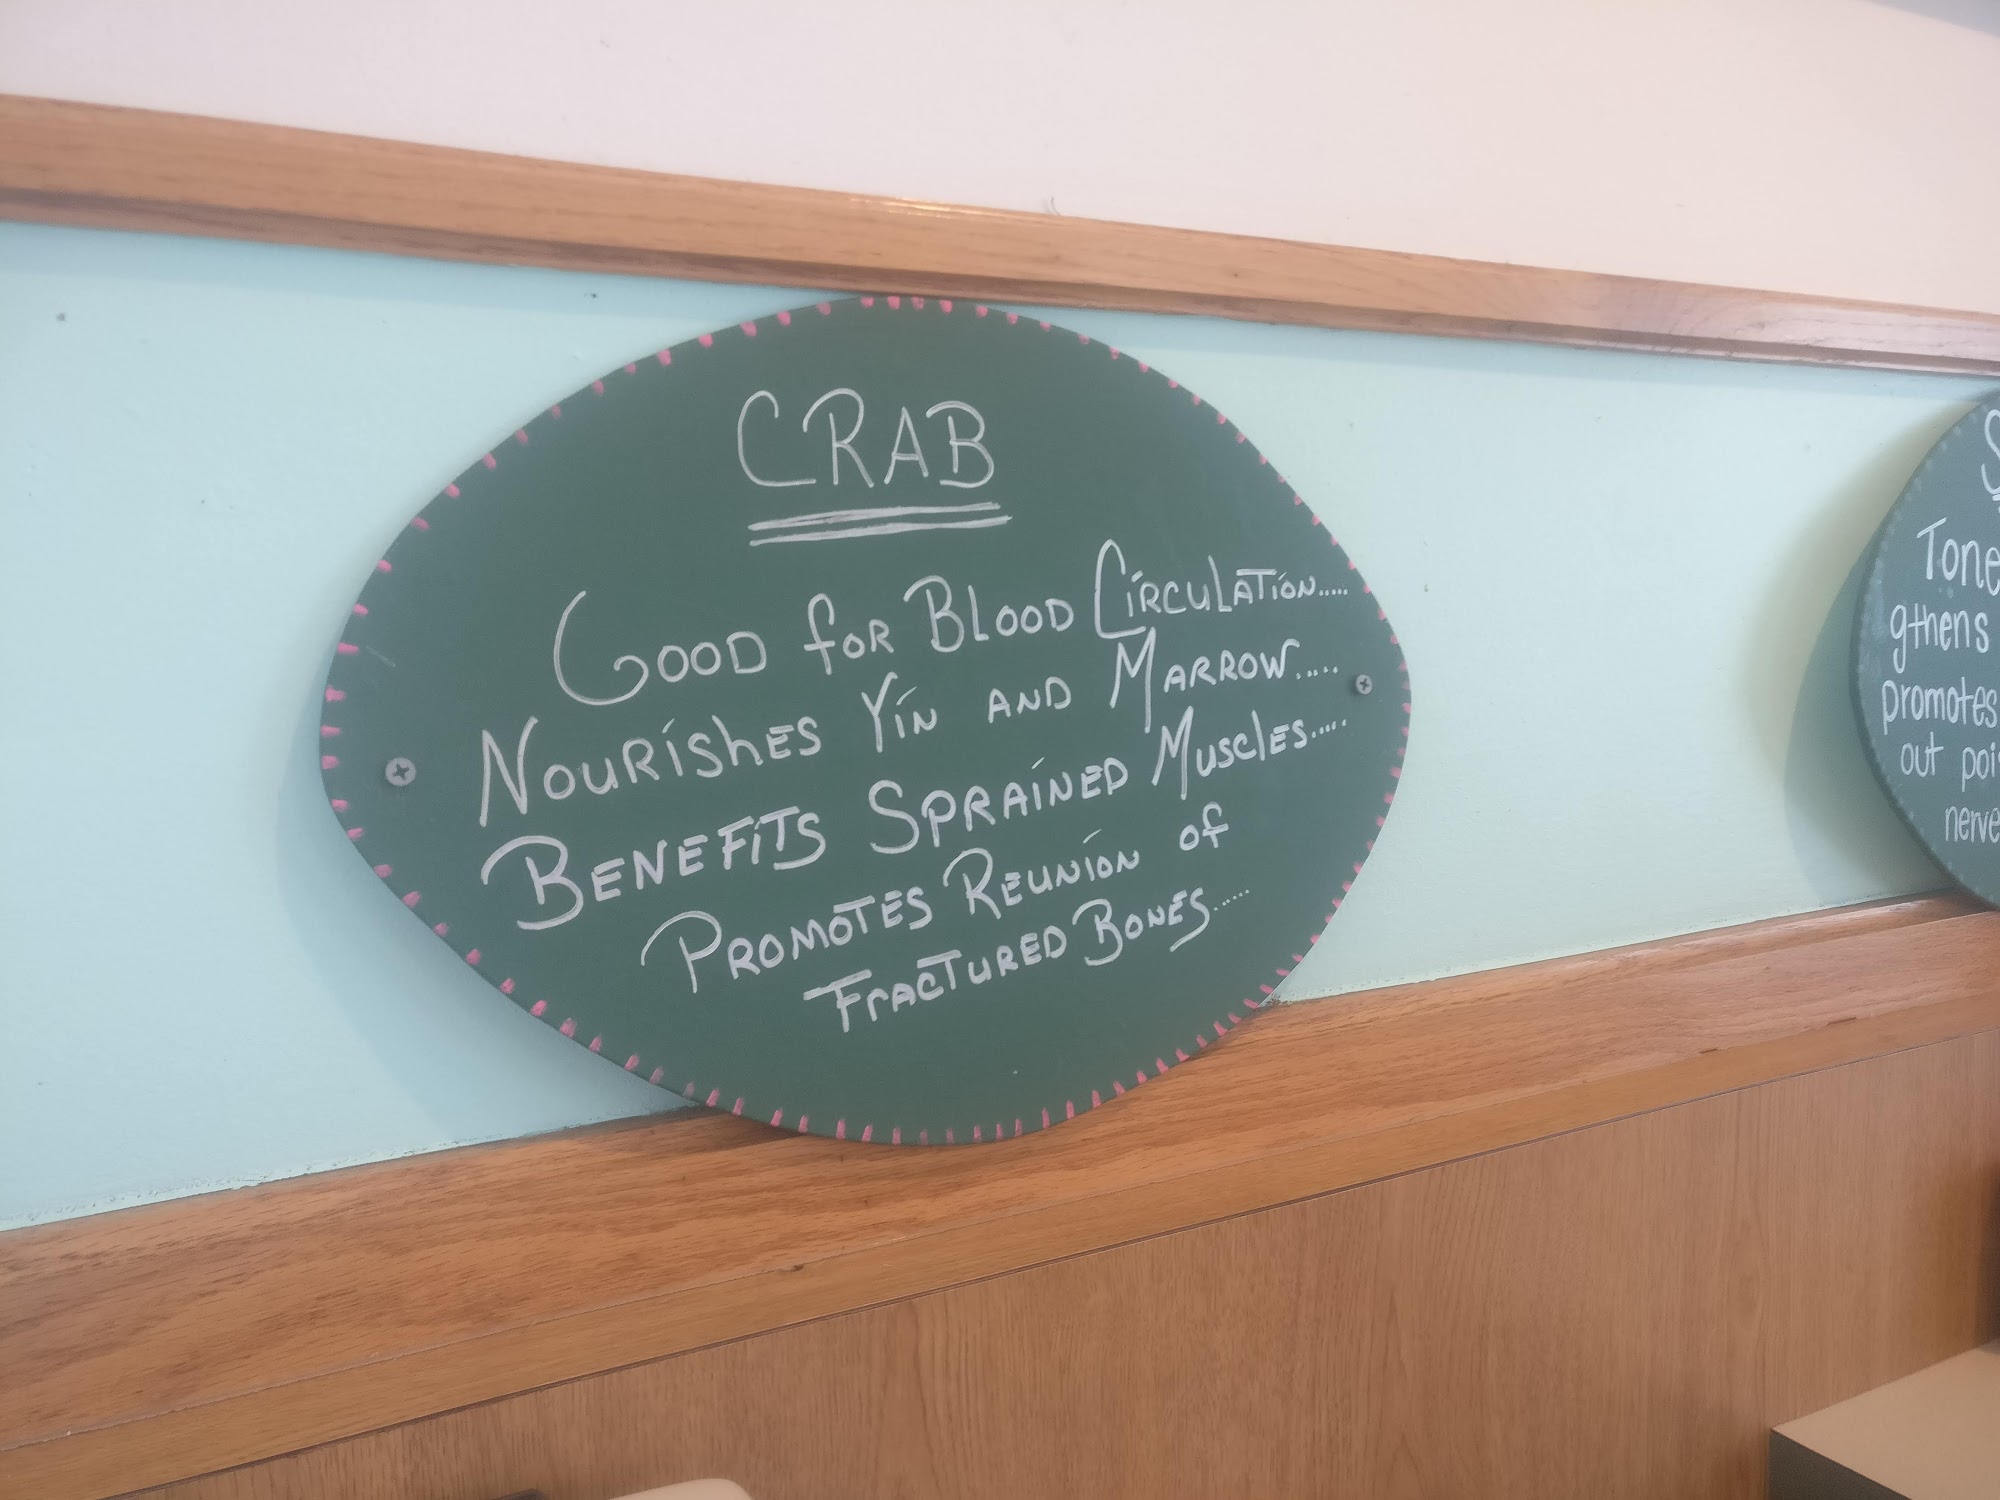 CRAB
GOOD for BLOOD CIRCULATION.....
NOURISHES YIN AND MARROW.....
BENEFITS SPRAINED MUSCLES.....
PROMOTES REUNION of
FRACTURED BONES.....
Tone
gthens
promotes
out
nerve